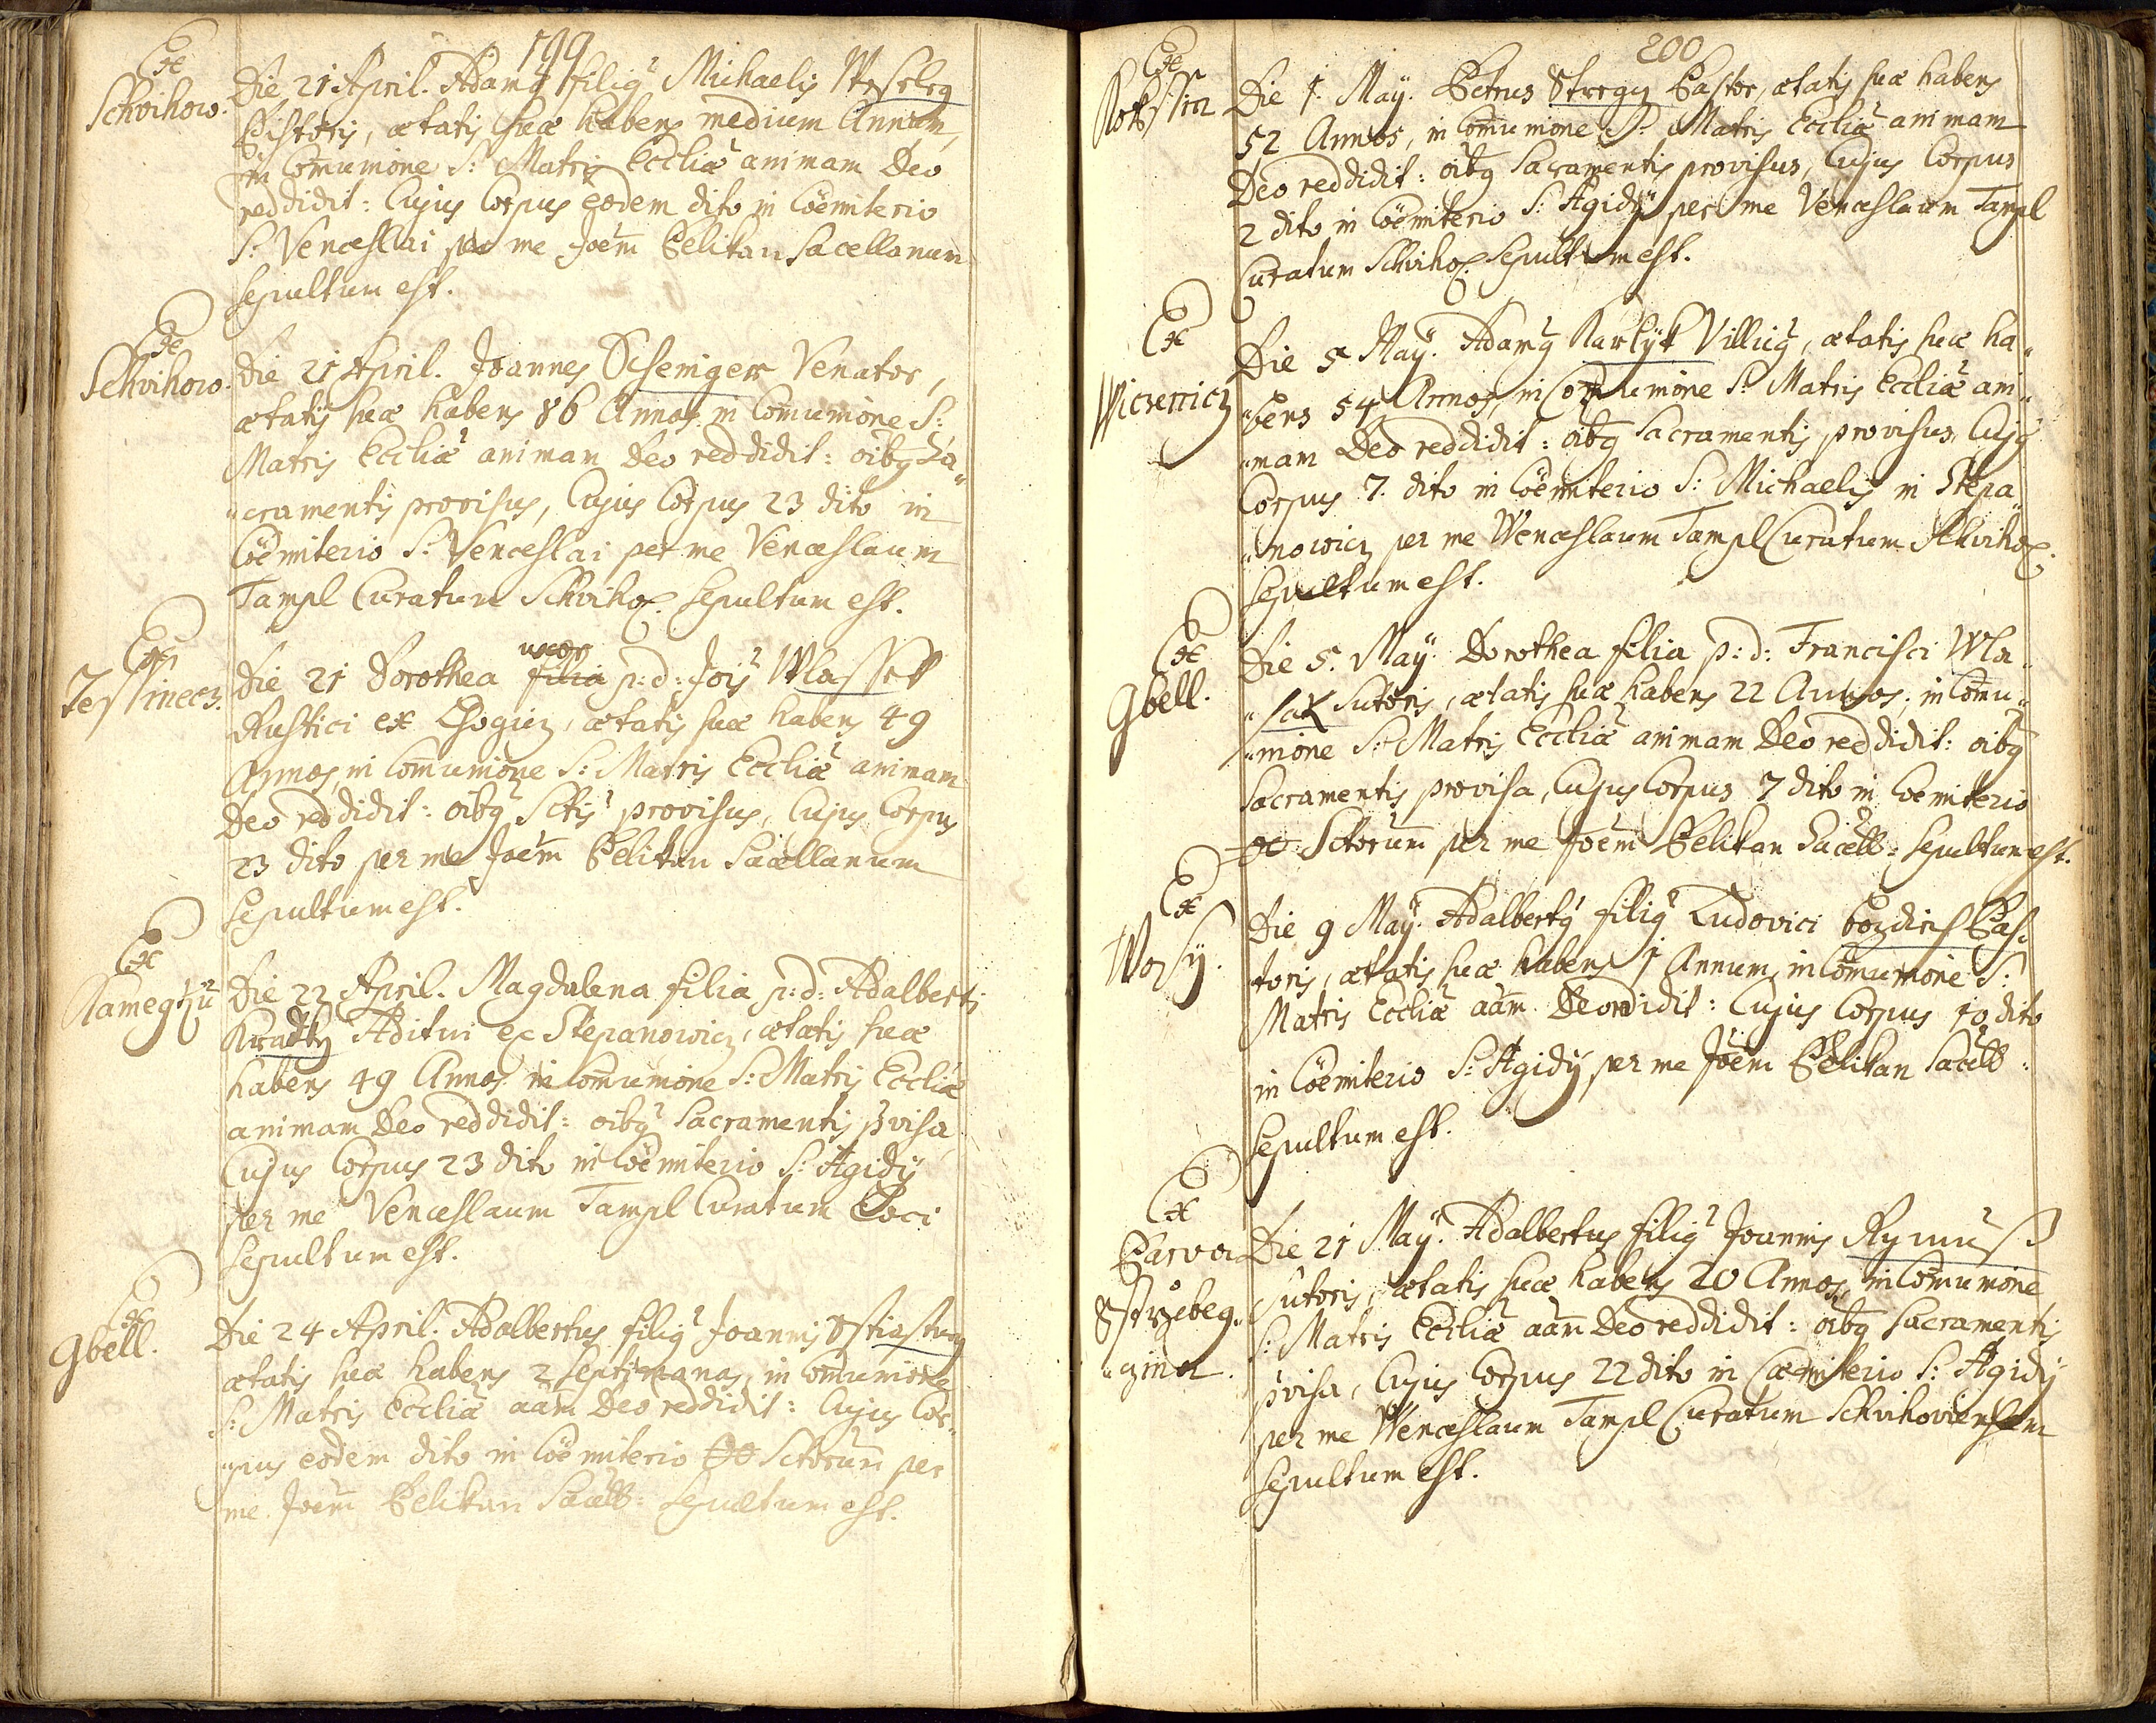 199
Ex
Schvihow.
Die 21 April. Adamꝰ filiꝰ Michaelis Weseleg
Pistoris, ætatis suæ habens medium Annum,
in Com̄unione S: Matris Eccliæ animam Deo
reddidit: Cujus Corpus eodem dito in Cöemiterio
S: Venceslai per me Joēm Pelikan Sacellanum
sepultum est.
Ex
Schvihow.
Die 21 April. Joannes Scheniger Venator,
ætatis suæ habens 86 Annos in Com̄unione S:
Matris Eccliæ animam Deo reddidit: oibꝰ Sa„
„cramentis provisus, Cujus Corpus 23 dito in
Cöemiterio S: Venceslai per me Venceslaum
Tampl Curatum Schviho: sepultum est.
Ex
Tessinecz.
uxor
Die 21 Dorothea filia p: d: Jois Wlassek
Rustici ex Chogicz, ætatis suæ habens 49
Annos, in Com̄unione S: Matris Eccliæ animam
Deo reddidit: oibꝰ Sctis provisus, Cujus Corpus
23 dito per me Joēm Pelikan Sacellanum
sepultum est.
Ex
Die 22 April. Magdalena filia p: d: Adalberti
Kratky Æditui ex Stepanowicz, ætatis suæ
habens 49 Annos in Com̄unione S: Matris Eccliæ
animam Deo reddidit: oibꝰ Sacramentis pvisa
Cujus Corpus 23 dito in Cöemiterio S: Ægidÿ
per me Venceslaum Tampl Curatum Loci
sepultum est.
Ex
Gbell.
Die 24 April. Adalbertus filiꝰ Joannis Sstiastny
ætatis suæ habens 2 septimanas, in Com̄unione
S: Matris Eccliæ aām Deo reddidit: Cujus Cor„
„pus eodem dito in Cöemiterio OO Sctorum per
me Joēm Pelikan Sacell: sepultum est.
200
Ex
Rokssin
Die 1. Maÿ. Petrus Stregy Pastor, ætatis suæ habens
52 Annos, in Com̄unione S: Matris Eccliæ animam
Deo reddidit: oibꝰ Sacramentis provisus, Cujus Corpus
2 dito in Cöemiterio S: Ægidÿ per me Venceslaum Tampl
Curatum Schviho: sepultum est.
Ex
Die 5 Maÿ. Adamꝰ Karlyk Villicꝰ, ætatis suæ ha„
„bens 54 Annos, in Com̄unione S: Matris Eccliæ ani„
„mam Deo reddidit: oibꝰ Sacramentis provisus, Cujꝰ
Corpus 7. dito in Cöemiterio S: Michaelis in Stepa„
„nowicz per me Wenceslaum Tampl Curatum Schviho:
sepultum est.
Ex
Gbell.
Die 5. Maÿ. Dorothea filia p: d: Francisci Wla„
„sak Sutoris, ætatis suæ habens 22 Annos, in Com̄u„
„nione S: Matris Eccliæ animam Deo reddidit: oibꝰ
Sacramentis provisa, Cujus Corpus 7 dito in Coemiterio
OO Sctorum per me Joēm Pelikan Sacell: sepultum est.
Ex
Wosÿ.
Die 9 Maÿ. Adalbertꝰ filiꝰ Ludovici Pas„
toris, ætatis suæ habens 1 Annum, in Com̄unione S:
Matris Eccliæ aām Deo rdidit: Cujus Corpus 10 dito
in Cöemiterio S: Ægidÿ per me Joēm Pelikan Sacell:
sepultum est.
Ex
Parva
Sstržebeg„
„czina.
Die 21 Maÿ. Adalbertus filiꝰ Joannis Rymuss
Sutoris, ætatis suæ habens 20 Annos, in Com̄unione
S: Matris Eccliæ aām Deo reddidit: oibꝰ Sacramentis
pvisa, Cujus Corpus 22 dito in Cæmiterio S: Ægidÿ
per me Wenceslaum Tampl Curatum Schvihoviensem
sepultum est.